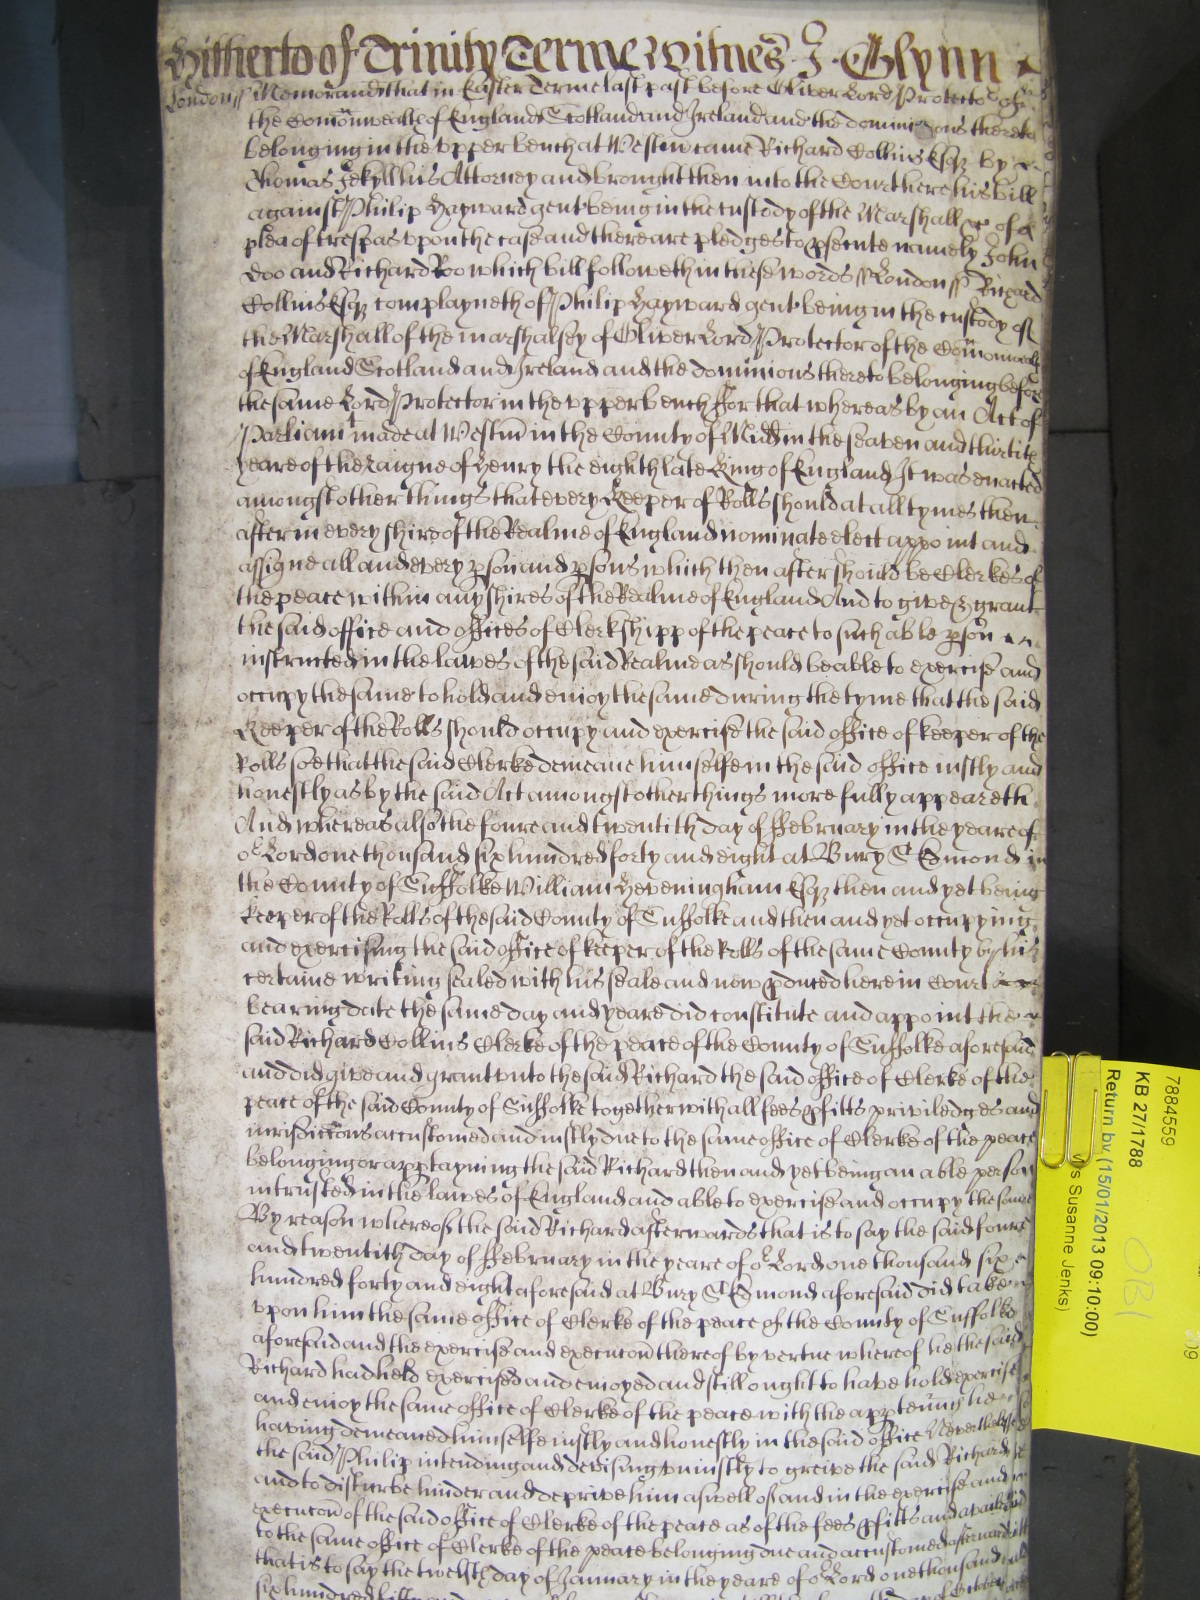 Hitherto of Trinity Terme Witnes J. Glynn
London ss Memorand that in Easter Terme last past before Oliver Lord Protector of
the Comonwealth of England Scotland and Ireland and the dominions thereto
belonging in the upper bench at Westm came Richard Collins Esqr by
Thomas Jekyll his Attorney and brought then into the Court here his bill
against Philip Hayward gent being in the custody of the Marshall &c of a
plea of trespas vpon the case and there are pledges to psecute namely John
Doo and Richard Roo which bill followeth in these words ss London ss Richard
Collins Esqr complayneth of Philip Hayward gent being in the custody of
the Marshall of the marshalsey of Oliver Lord Protector of the Comonwealth
of England Scotland and Ireland and the dominions thereto belonging before
the same Lord Protector in the vpper bench ffor that whereas by an Act of
Parliamt made at Westm in the County of Midd in the seaven and thirtith
yeare of the Raigne of Henry the eighth late King of England It was enacted
amongst other things that every Keeper of Rolls should at all tymes then
after in every shire of the Realme of England nominate elect appoint and
assigne all and every pson and psons which then after should be Clerkes of
the peace within any shires of the Realme of England And to give & grant
the said office and offices of Clerkshipp of the peace to such able pson
instructed in the lawes of the said Realme as should be able to exercise and
occupy the same to hold and enioy the same during the tyme that the said
Keeper of the Rolls should occupy and exercise the said office of keeper of the
Rolls soe that the said Clerke demeane himselfe in the said office iustly and
honestly as by the said Act amongst other things more fully appeareth
And whereas also the foure and twentith day of ffebruary in the yeare of
or Lord one thousand six hundred forty and eight at Bury St Edmond in
the County of Suffolke William Heveningham Esqr then and yet being
keeper of the Rolls of the said County of Suffolke and then and yet occupying
and exercising the said office of keeper of the Rolls of the same County by his
certaine writing sealed with his seale and now pduced here in Court
bearing date the same day and yeare did constitute and appoint the
said Richard Collins Clerke of the peace of the County of Suffolke aforesaid
and did give and grant vnto the said Richard the said office of Clerke of the
peace of the said County of Suffolke together with all fees pfitts priviledges and
iurisdiccons accustomed and iustly due to the same office of Clerke of the peace
belonging or apptayning the said Richard then and yet being an able person
intrusted in the lawes of England and able to exercise and occupy the same
By reason whereof the said Richard afterwards that is to say the said foure
and twentith day of ffebruary in the yeare of or Lord one thousand six
hundred forty and eight aforesaid at Bury St Edmond aforesaid did take
vpon him the same office of Clerke of the peace of the County of Suffolke
aforesaid and the exercise and execucon thereof by vertue whereof he the said
Richard had held exercised and enioyed and still ought to have hold exercise
and enioy the same office of Clerke of the peace with the apptenncs he
having demeaned himselfe iustly and honestly in the said office Neverthelesse
the said Philip intending and devising vniustly to greive the said Richard
and to disturbe hinder and deprive him aswell of and in the exercise and
execucon of the said office of Clerke of the peace as of the fees pfitts and
to the same office of Clerke of the peace belonging due and accustomed afterwards
that is to say the twelfth day of January in the yeare of or Lord one thousand
six hundred
7884559
KB 27/1788
Return by (15/01/2013 09:10:00)
Ms Susanne Jenks)
OBI